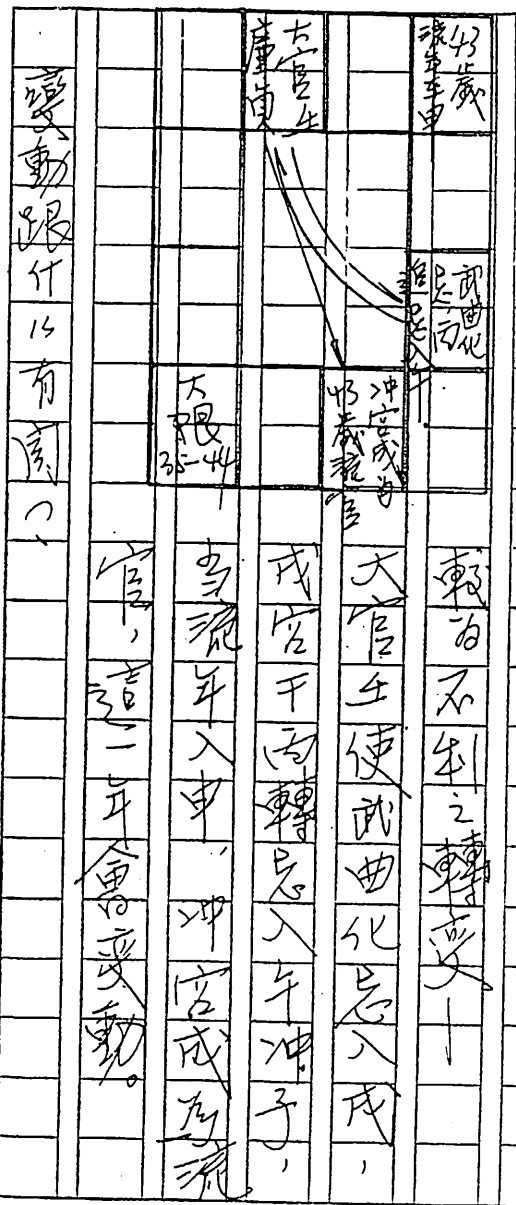 43歲
流年在申
大官壬
廉貞
武曲化
忌丙
追忌入午
沖宮成為
43歲流官
大限
35-44
較為不利之轉变—
大官壬使武曲化忌入戌，
戌宮干丙轉忌入午沖子，
当流年入申，沖宮成为流
官，這一年會变動。
變動跟什么有関？、